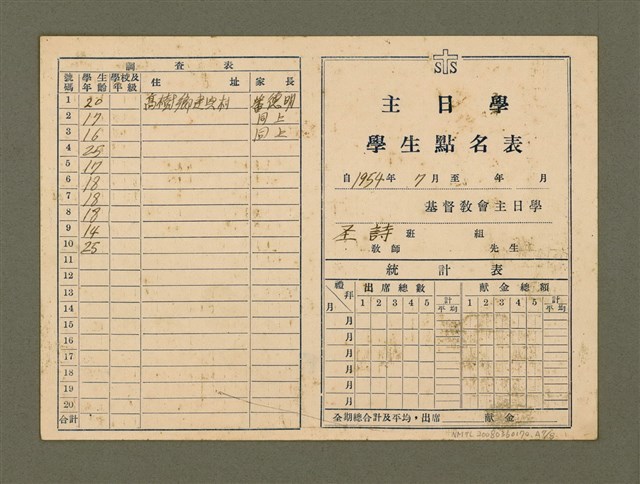 調查表
號碼 學生年齡 學校及年級 住址 家長
1 20 高樹鄉建興村 德明
2 17 同上
3 16 同上
4 25
5 17
6 18
7 18
8 18
9 14
10 25
11
12
13
14
15
16
17
18
19
20
合計
SS
主日學
學生點名表
自1954年7月至 年 月
基督敎會主日學
圣詩班 組
敎師 先生
統計表
禮拜 月 出席總數 献金總額
1 2 3 4 5 計 平均 1 2 3 4 5 計 平均
月
月
月
月
月
月
全期總合計及平均・出席 献金
NMTL20080260170